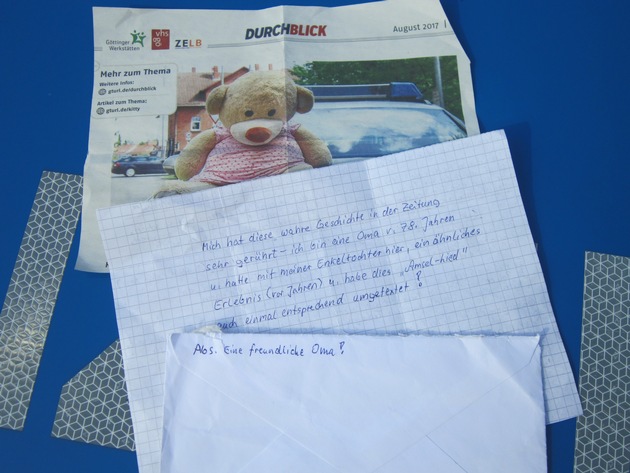 Göttinger
Werkstätten
vhs
ZELB
DURCHBLICK
August 2017
Mehr zum Thema
Weitere Infos:
gturl.de/durchblick
Artikel zum Thema:
gturl.de/kitty
Mich hat diese wahre Geschichte in der Zeitung
sehr gerührt - ich bin eine Oma v. 78. Jahren
u. hatte mit meiner Enkeltochter hier, ein ähnliches
Erlebnis (vor Jahren) u. habe dies „Amsel-Lied"
auch einmal entsprechend umgetextet!
Abs. Eine freundliche Oma!